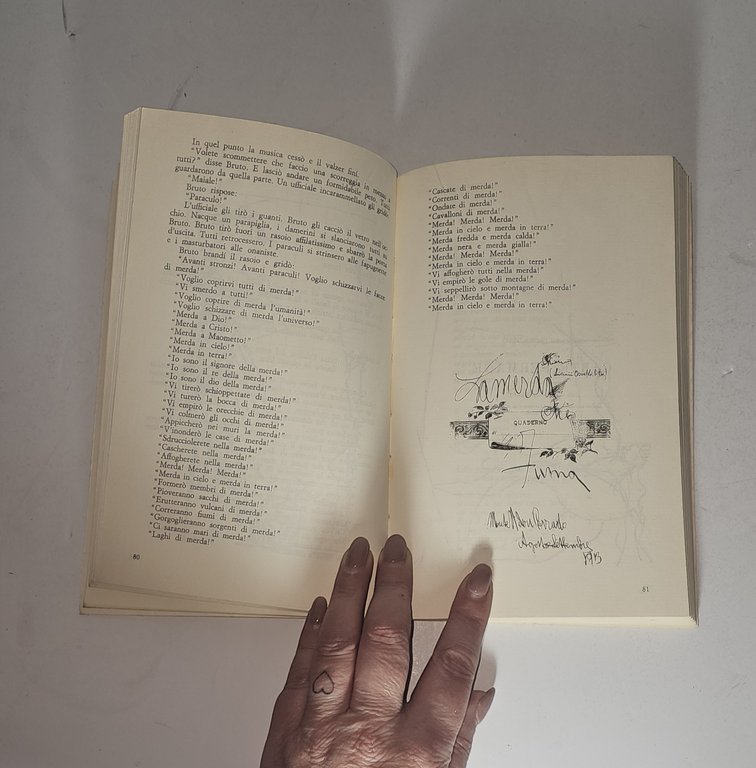 In quel punto la musica cessò e il valzer finì.
"Volete scommettere che faccio una scorreggia in mezzo a
tutti?" disse Bruto. E lasciò andare un formidabile peto. Tutti
guardarono da quella parte. Un ufficiale incaramellato gli gridò:
"Maiale!"
Bruto rispose:
"Paraculo!"
L'ufficiale gli tirò i guanti. Bruto gli cacciò il vetro nell'oc-
chio. Nacque un parapiglia, i damerini si slanciarono tutti su
Bruto. Bruto tirò fuori un rasoio affilatissimo e sbarrò la porta
d'uscita. Tutti retrocessero. I paraculi si strinsero alle fapugnette
e i masturbatori alle onaniste.
Bruto brandì il rasoio e gridò:
"Avanti stronzi! Avanti paraculi! Voglio schizzarvi le facce
di merda!"
"Voglio coprirvi tutti di merda!"
"Vi smerdo a tutti!"
"Voglio coprire di merda l'umanità!"
"Voglio schizzare di merda l'universo!"
"Merda a Dio!"
"Merda a Cristo!"
"Merda a Maometto!"
"Merda in cielo!"
"Merda in terra!"
"Io sono il signore della merda!"
"Io sono il re della merda!"
"Io sono il dio della merda!"
"Vi tirerò schioppettate di merda!"
"Vi turerò la bocca di merda!"
"Vi empirò le orecchie di merda!"
"Vi colmerò gli occhi di merda!"
"Appiccherò nei muri la merda!"
"V'inonderò le case di merda!"
"Sdrucciolerete nella merda!"
"Cascherete nella merda!"
"Affogherete nella merda!"
"Merda! Merda! Merda!"
"Merda in cielo e merda in terra!"
"Formerò membri di merda!"
"Pioveranno sacchi di merda!"
"Erutteranno vulcani di merda!"
"Correranno fiumi di merda!"
"Gorgoglieranno sorgenti di merda!"
"Ci saranno mari di merda!"
"Laghi di merda!"
80
"Cascate di merda!"
"Correnti di merda!"
"Ondate di merda!"
"Cavalloni di merda!"
"Merda! Merda! Merda!"
"Merda in cielo e merda in terra!"
"Merda fredda e merda calda!"
"Merda nera e merda gialla!"
"Merda! Merda! Merda!"
"Merda in cielo e merda in terra!"
"Vi affogherò tutti nella merda!"
"Vi empirò le gole di merda!"
"Vi seppellirò sotto montagne di merda!"
"Merda! Merda! Merda!"
"Merda in cielo e merda in terra!"
La merda
che
QUADERNO
Fuma
Agosto Settembre
81